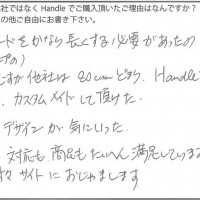 社ではなく Handle でご購入頂いたご理由はなんですか？
の他ご自由にお書き下さい。
ードをかなり長くする必要があったの
の）
すが他社は 80cm どまり、Handle
、カスタムメイドして頂けた。
デザインが気にいった。
対応も商品もたいへん満足している
々サイトにおじゃまします